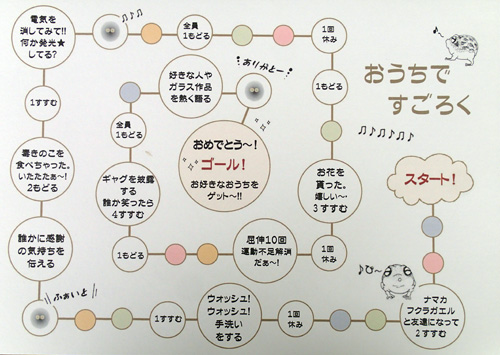 おうちで
すごろく
♪♫♪♫♪♫
スタート!
ナマカ
フクラガエル
と友達になって
2すすむ
♪ひ〜
1回
休み
ウォッシュ!
ウォッシュ!
手洗い
をする
1すすむ
ふぁいと
誰かに感謝
の気持ちを
伝える
毒きのこを
食べちゃった。
いたたたぁ〜!
2もどる
1すすむ
電気を
消してみて!!
何か発光★
してる?
♪♫♪
全員
1もどる
1回
休み
1もどる
お花を
貰った。
嬉しい〜
3すすむ
1回
休み
屈伸10回
運動不足解消
だぁ〜!
1もどる
ギャグを披露
する
誰か笑ったら
4すすむ
全員
1もどる
好きな人や
ガラス作品
を熱く語る
ありがとー
おめでとう〜!
ゴール!
お好きなおうちを
ゲット〜!!